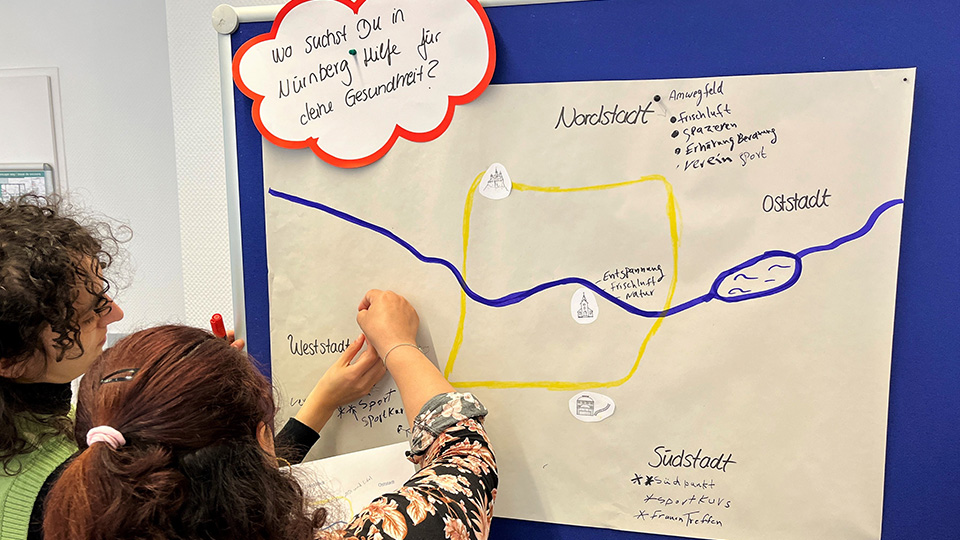 Wo suchst Du in
Nürnberg Hilfe für
deine Gesundheit?
Nordstadt
Amwegfeld
frischluft
spazeren
Erhärung Beratung
verein sport
Oststadt
- Entspannung
- frischluft
- Natur
Weststadt
** Sport
Sportkur
Südstadt
** Südpunkt
* sportkurs
* Frauen Treffen